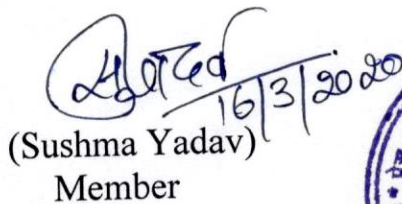 16/3/2020
(Sushma Yadav)
Member